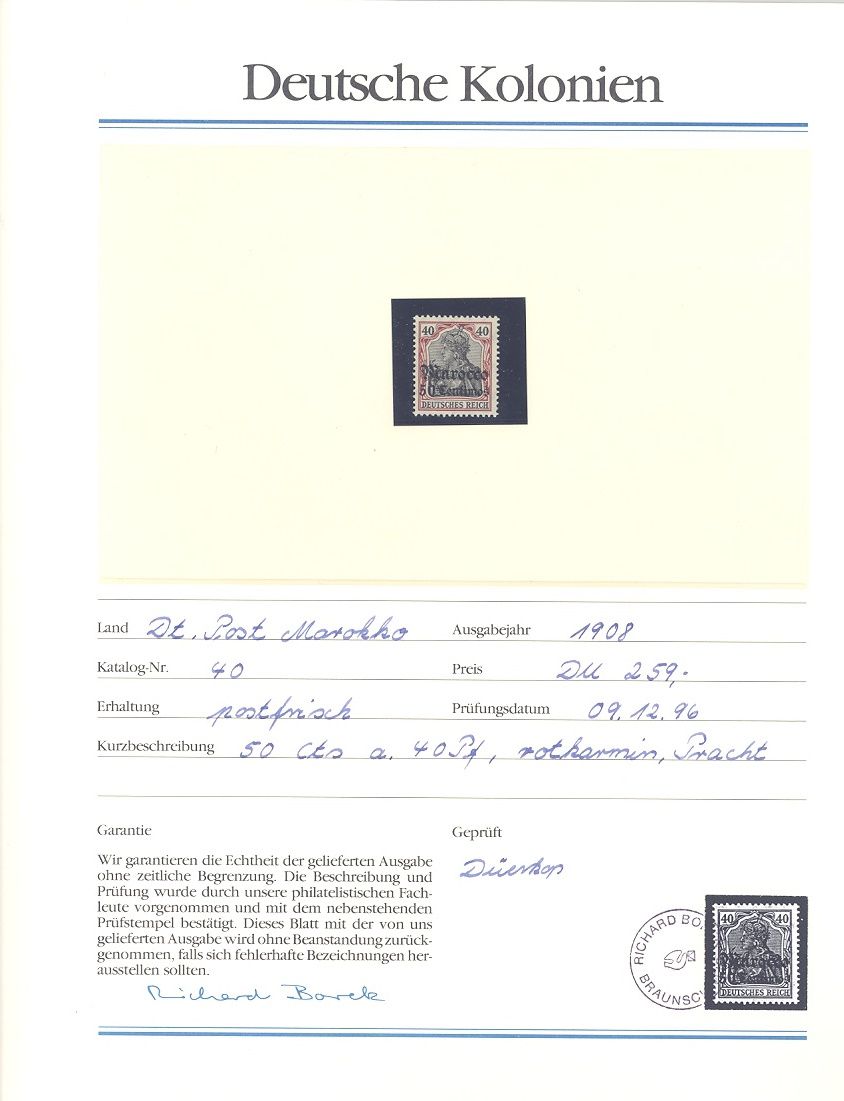 Deutsche Kolonien
40 40
Marocco
50 Centimos
DEUTSCHES REICH
Land Dt. Post Marokko Ausgabejahr 1908
Katalog-Nr. 40 Preis DM 259,-
Erhaltung postfrisch Prüfungsdatum 09.12.96
Kurzbeschreibung 50 Cts a. 40 Pf, rotkarmin, Pracht
Garantie Geprüft
Wir garantieren die Echtheit der gelieferten Ausgabe
ohne zeitliche Begrenzung. Die Beschreibung und
Prüfung wurde durch unsere philatelistischen Fach-
leute vorgenommen und mit dem nebenstehenden
Prüfstempel bestätigt. Dieses Blatt mit der von uns
gelieferten Ausgabe wird ohne Beanstandung zurück-
genommen, falls sich fehlerhafte Bezeichnungen her-
ausstellen sollten.
Richard Borek
Düerkop
RICHARD BO
BRAUNSC
40 40
Marocco
DEUTSCHES REICH